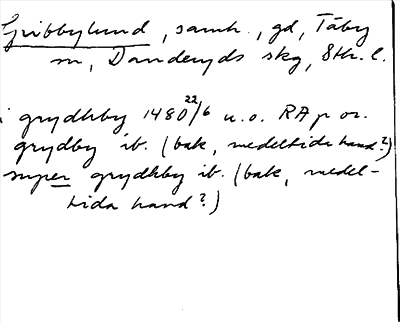 Gribbylund, samh., gd, Täby
sn, Danderyds skg, Sth. l.
i grydhby 1480 22/6 u.o. RAp or.
grydby ib. (bak, medeltida hand?)
super grydhby ib. (bak, medel-
tida hand?)